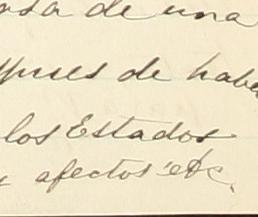 asa de una
pues de habe
los Estados
y afectos etc.